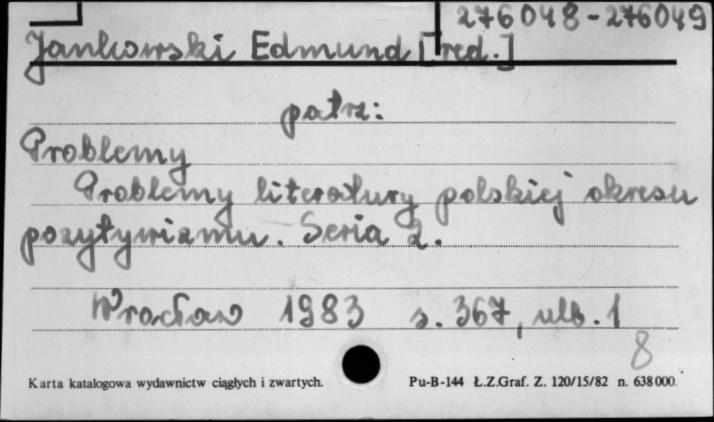 276048-276049
Jankowski Edmund [red.]
patrz:
Problemy
Problemy literatury polskiej okresu
pozytywizmu. Seria 2.
Wrocław 1983 s. 367, ulb. 1
8
Karta katalogowa wydawnictw ciągłych i zwartych. Pu-B-144 Ł.Z.Graf. Z. 120/15/82 n. 638000.